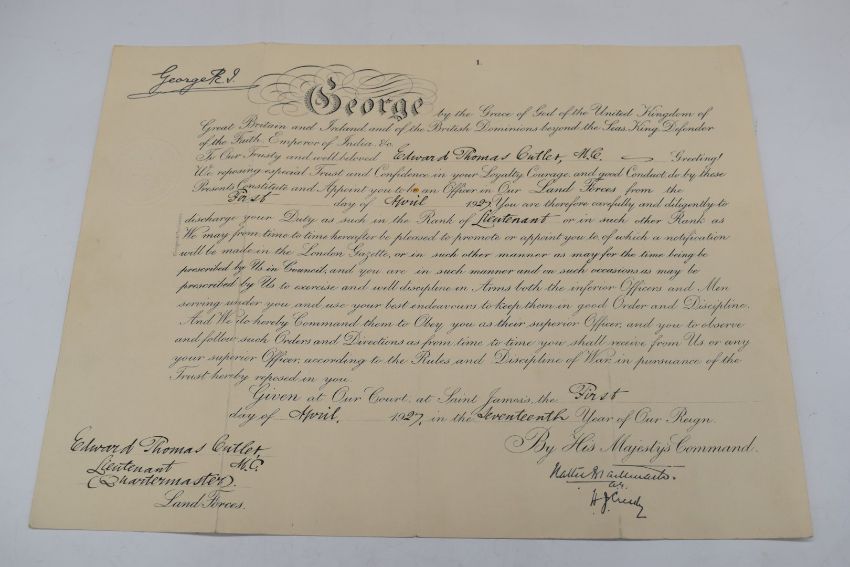 1.
George R. I.
George by the Grace of God of the United Kingdom of
Great Britain and Ireland and of the British Dominions beyond the Seas, King, Defender
of the Faith, Emperor of India, &c.
To Our Trusty and well beloved Edward Thomas Cutler, M.C. Greeting!
We reposing especial Trust and Confidence in your Loyalty, Courage, and good Conduct, do by these
Presents Constitute and Appoint you to be an Officer in Our Land Forces from the
First day of April 1927. You are therefore carefully and diligently to
discharge your Duty as such in the Rank of Lieutenant or in such other Rank as
We may from time to time hereafter be pleased to promote or appoint you to, of which a notification
will be made in the London Gazette, or in such other manner as may for the time being be
prescribed by Us in Council, and you are in such manner and on such occasions as may be
prescribed by Us to exercise and well discipline in Arms both the inferior Officers and Men
serving under you and use your best endeavours to keep them in good Order and Discipline.
And We do hereby Command them to Obey you as their superior Officer, and you to observe
and follow such Orders and Directions as from time to time you shall receive from Us or any
your superior Officer, according to the Rules and Discipline of War, in pursuance of the
Trust hereby reposed in you.
Given at Our Court, at Saint James's, the First
day of April, 1927, in the Seventeenth Year of Our Reign.
By His Majesty's Command.
Edward Thomas Cutler,
Lieutenant M.C.
(Quartermaster).
Land Forces.
H J Creedy